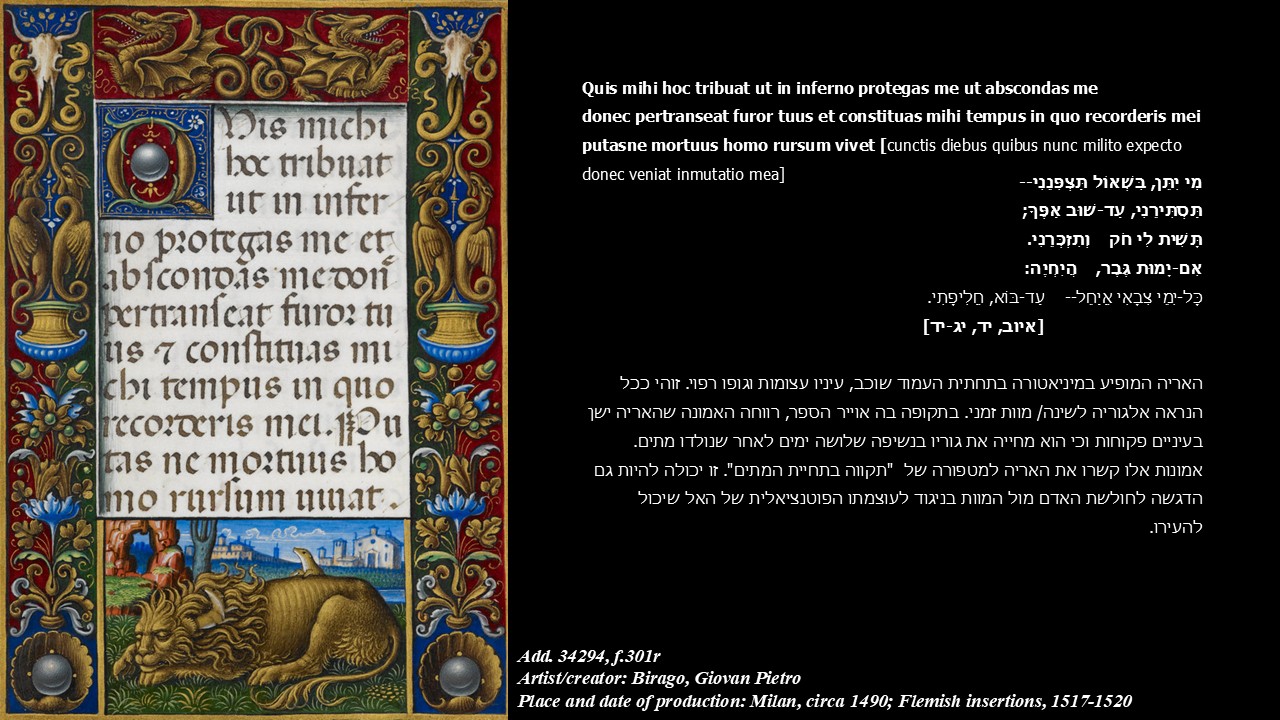 Vis michi
hoc tribuat
ut in infer
no protegas me et
abscondas me don̄
pertranseat furor tu
us ⁊ constituas mi
chi tempus in quo
recorderis mei. Pu
tas ne mortuus ho
mo rursum vivat.
Quis mihi hoc tribuat ut in inferno protegas me ut abscondas me
donec pertranseat furor tuus et constituas mihi tempus in quo recorderis mei
putasne mortuus homo rursum vivet [cunctis diebus quibus nunc milito expecto
donec veniat inmutatio mea]
מִי יִתֵּן, בִּשְׁאוֹל תַּצְפִּנֵנִי--
תַּסְתִּירֵנִי, עַד-שׁוּב אַפֶּךָ;
תָּשִׁית לִי חֹק וְתִזְכְּרֵנִי.
אִם-יָמוּת גֶּבֶר, הֲיִחְיֶה:
כָּל-יְמֵי צְבָאִי אֲיַחֵל-- עַד-בּוֹא, חֲלִיפָתִי.
[איוב, יד, יג-יד]
האריה המופיע במיניאטורה בתחתית העמוד שוכב, עיניו עצומות וגופו רפוי. זוהי ככל
הנראה אלגוריה לשינה/ מוות זמני. בתקופה בה אוייר הספר, רווחה האמונה שהאריה ישן
בעיניים פקוחות וכי הוא מחייה את גוריו בנשיפה שלושה ימים לאחר שנולדו מתים.
אמונות אלו קשרו את האריה למטפורה של "תקווה בתחיית המתים". זו יכולה להיות גם
הדגשה לחולשת האדם מול המוות בניגוד לעוצמתו הפוטנציאלית של האל שיכול
להעירו.
Add. 34294, f.301r
Artist/creator: Birago, Giovan Pietro
Place and date of production: Milan, circa 1490; Flemish insertions, 1517-1520